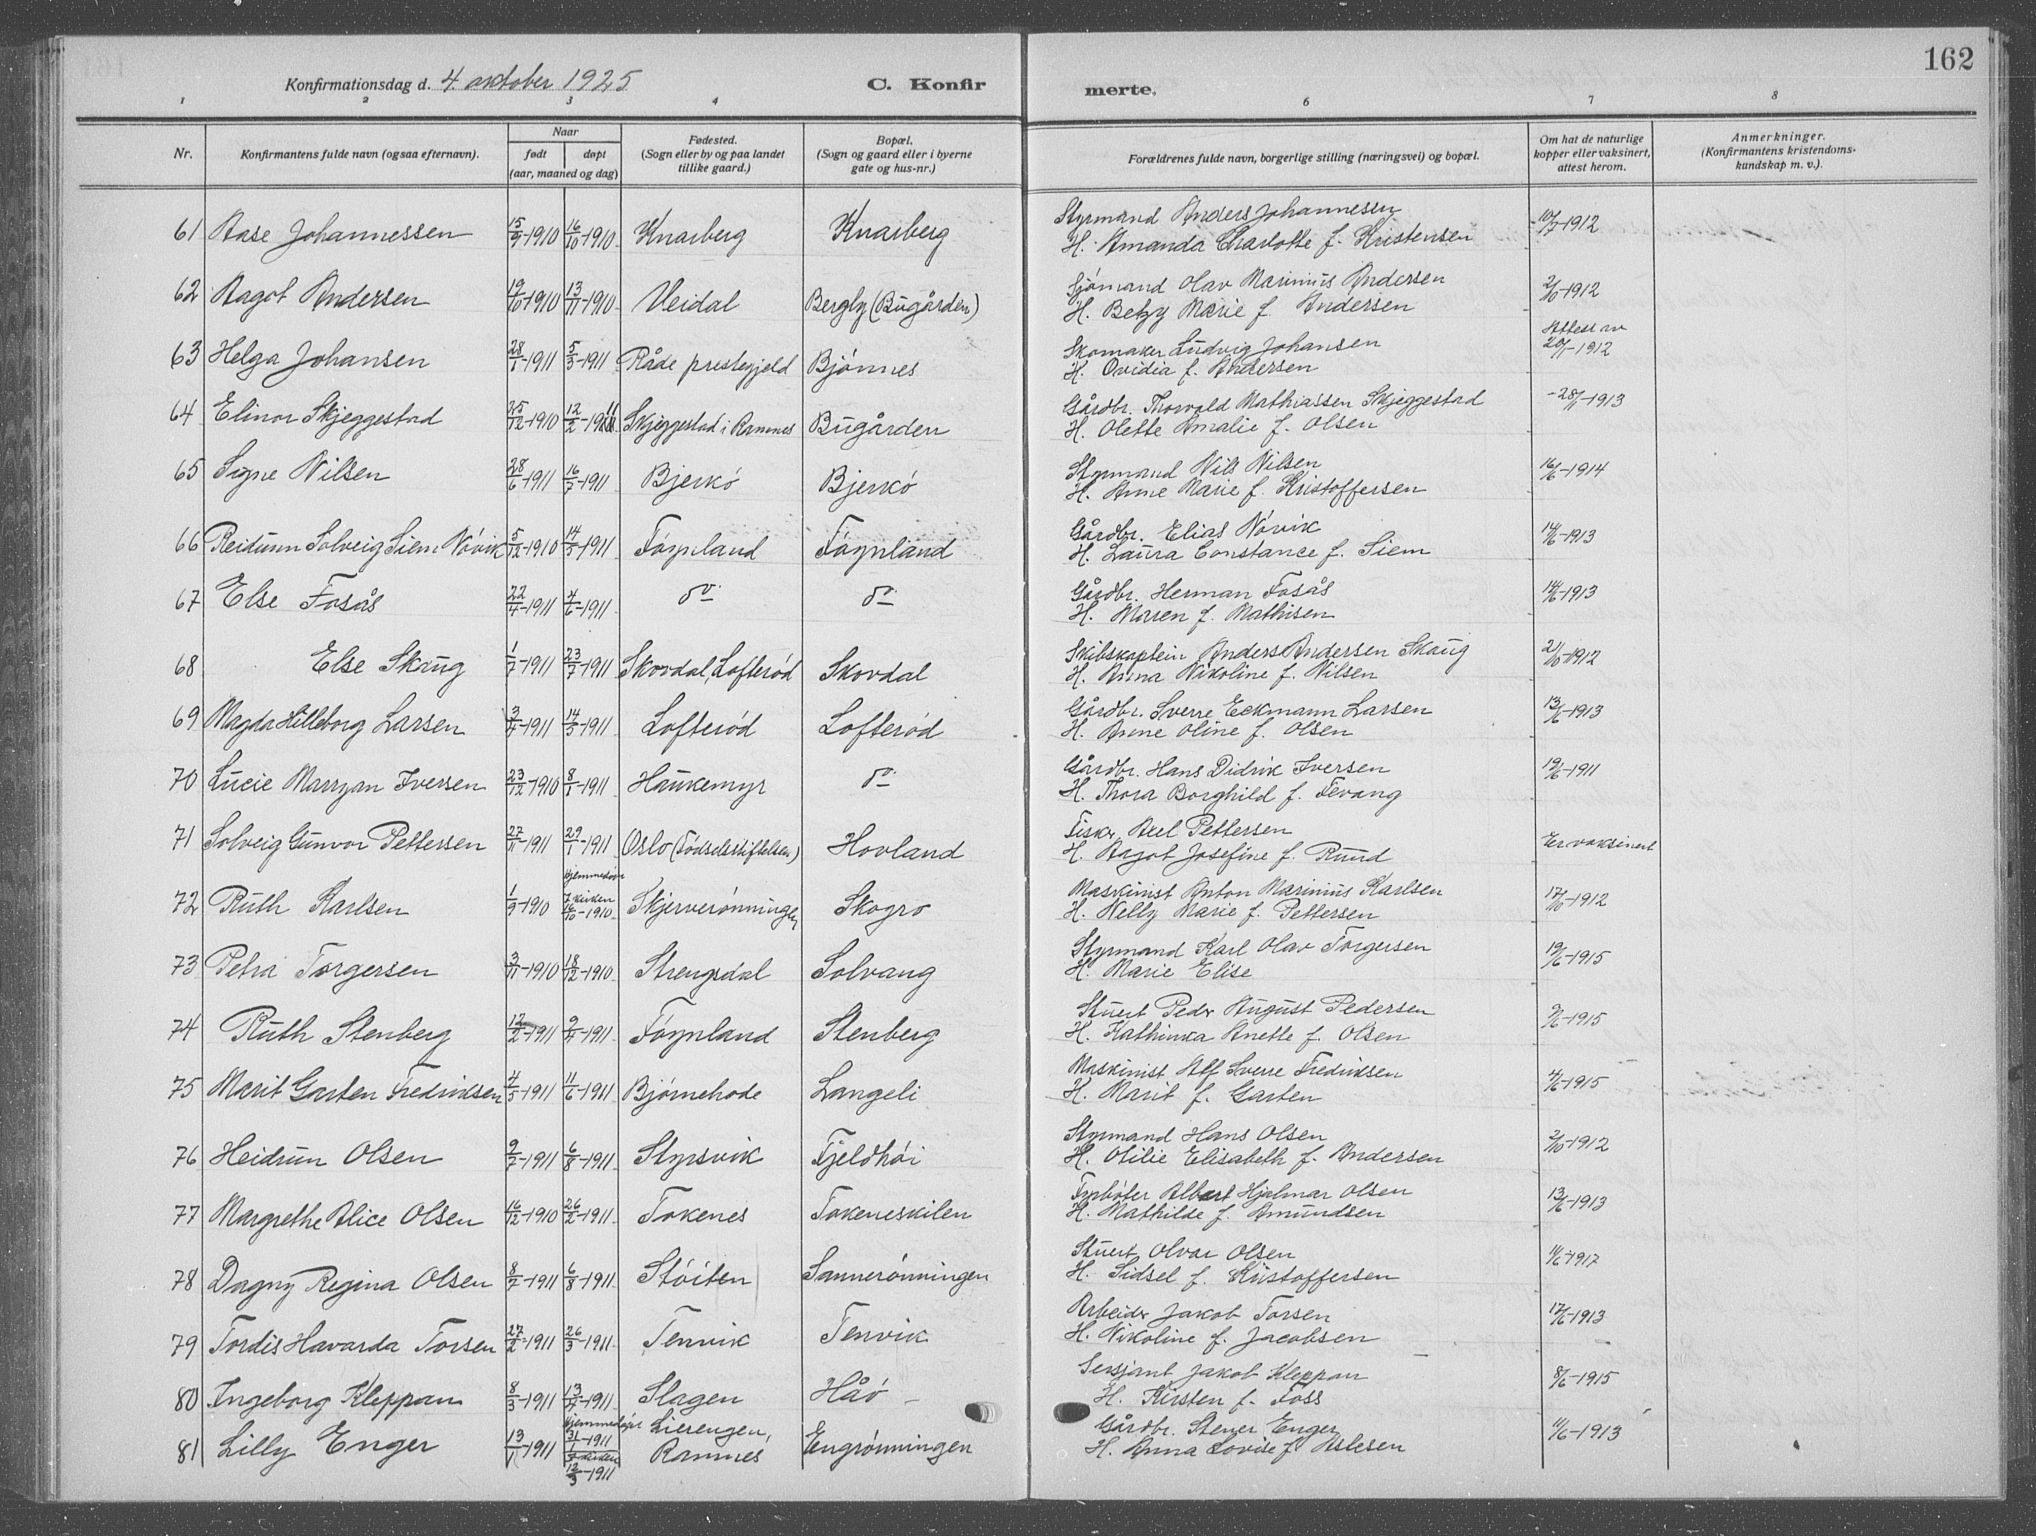 162
Konfirmationsdag d. 4 oktober 1925 C. Konfir merte.
1 2 3 4 6 7 8
Nr. Konfirmantens fulde navn (ogsaa efternavn). Naar født døpt (aar, maaned og dag) Fødested. (Sogn eller by og paa landet tillike gaard.) Bopæl. (Sogn og gaard eller i byerne gate og hus-nr.) Forældrenes fulde navn, borgerlige stilling (næringsvei) og bopæl. Om hat de naturlige kopper eller vaksinert, attest herom. Anmerkninger. (Konfirmantens kristendoms-kundskap m. v.).
61 Aase Johannessen 15/9-1910 16/10-1910 Knarberg Knarberg Styrmand Anders Johannesen -10/7-1912
H. Amanda Charlotte f. Kristensen
62 Aagot Andersen 19/10-1910 13/11-1910 Veidal Bergly (Bugården) Sjömand Olav Marinius Andersen 2/10-1912
H. Betzy Marie f. Andersen
63 Helga Johansen 28/1-1911 5/3-1911 Råde prestegjeld Bjönnes Skomaker Ludvig Johansen Attest av 20/1-1912
H. Ovidia f. Andersen
64 Elinor Skjeggestad 25/12-1910 12/2-1911 Skjeggestad i Ramnes Bugården Gårdbr. Thorvald Mathiassen Skjeggestad -28/1-1913
H. Olette Amalie f. Olsen
65 Signe Nilsen 28/6-1911 16/7-1911 Bjerkö Bjerkö Styrmand Nils Nilsen 16/6-1914
H. Anne Marie f. Kristoffersen
66 Reidunn Solveig Siem Növik 5/12-1910 14/5-1911 Föynland Föynland Gårdbr. Elias Növik 14/6-1913
H. Laura Constance f. Siem
67 Else Fosås 22/4-1911 4/6-1911 do do Gårdbr. Herman Fosås 14/6-1913
H. Maren f. Mathisen
68 Else Skaug 1/7-1911 23/7-1911 Skovdal, Lofteröd Skovdal Skibskaptein Anders Andersen Skaug 2/10-1912
H. Anna Nikoline f. Nilsen
69 Magda Hilleborg Larsen 3/4-1911 14/5-1911 Lofteröd Lofteröd Gårdbr. Sverre Eckmann Larsen 13/6-1913
H. Anne Oline f. Olsen
70 Lucie Marryan Iversen 23/12-1910 8/1-1911 Haukemyr do Gårdbr. Hans Didrik Iversen 19/6-1911
H. Thora Borghild f. Fevang
71 Solveig Gunvor Pettersen 27/11-1911 29/1-1911 Oslo (Födselsstiftelsen) Hovland Fisker Axel Pettersen Er vaksinert
H. Aagot Josefine f. Ruud
72 Ruth Karlsen 1/9-1910 hjemmedöbt i kirken 16/10-1910 Skjerverönningen Skogro Maskinist Anton Marinius Karlsen 17/10-1912
H. Nelly Marie f. Pettersen
73 Petra Torgersen 3/11-1910 18/12-1910 Strengsdal Solvang Styrmand Karl Olav Torgersen 19/6-1915
H. Marie Elise
74 Ruth Stenberg 12/2-1911 9/4-1911 Föynland Stenberg Stuert Peder August Pedersen 9/6-1915
H. Kathinka Anette f. Olsen
75 Marit Garten Fredriksen 4/5-1911 11/6-1911 Bjørnehode Langeli Maskinist Alf Sverre Fredriksen 4/6-1915
H. Marit f. Garten
76 Heidrun Olsen 9/7-1911 6/8-1911 Styrsvik Fjeldhöi Styrmand Hans Olsen 2/10-1912
H. Otilie Elisabeth f. Andersen
77 Margrethe Alice Olsen 16/12-1910 26/2-1911 Tokenes Tokeneskilen Fyrböter Albert Hjalmar Olsen 13/6-1913
H. Mathilde f. Amundsen
78 Dagny Regina Olsen 8/7-1911 6/8-1911 Stöiten Sannerönningen Stuert Olvar Olsen 11/6-1917
H. Sidsel f. Kristoffersen
79 Tordis Havarda Torsen 27/2-1911 26/3-1911 Tenvik Tenvik Arbeider Jakob Torsen 17/6-1913
H. Nikoline f. Jacobsen
80 Ingeborg Kleppan 8/3-1911 13/4-1911 Slagen Håö Sersjant Jakob Kleppan 8/6-1915
H. Kirsten f. Foss
81 Lilly Enger 13/1-1911 hjemmedöpt 31/1-1911 i kirken 12/3-1911 Lierengen, Ramnes Engrönningen Gårdbr. Stener Enger 11/6-1913
H. Anna Lovise f. Aslesen